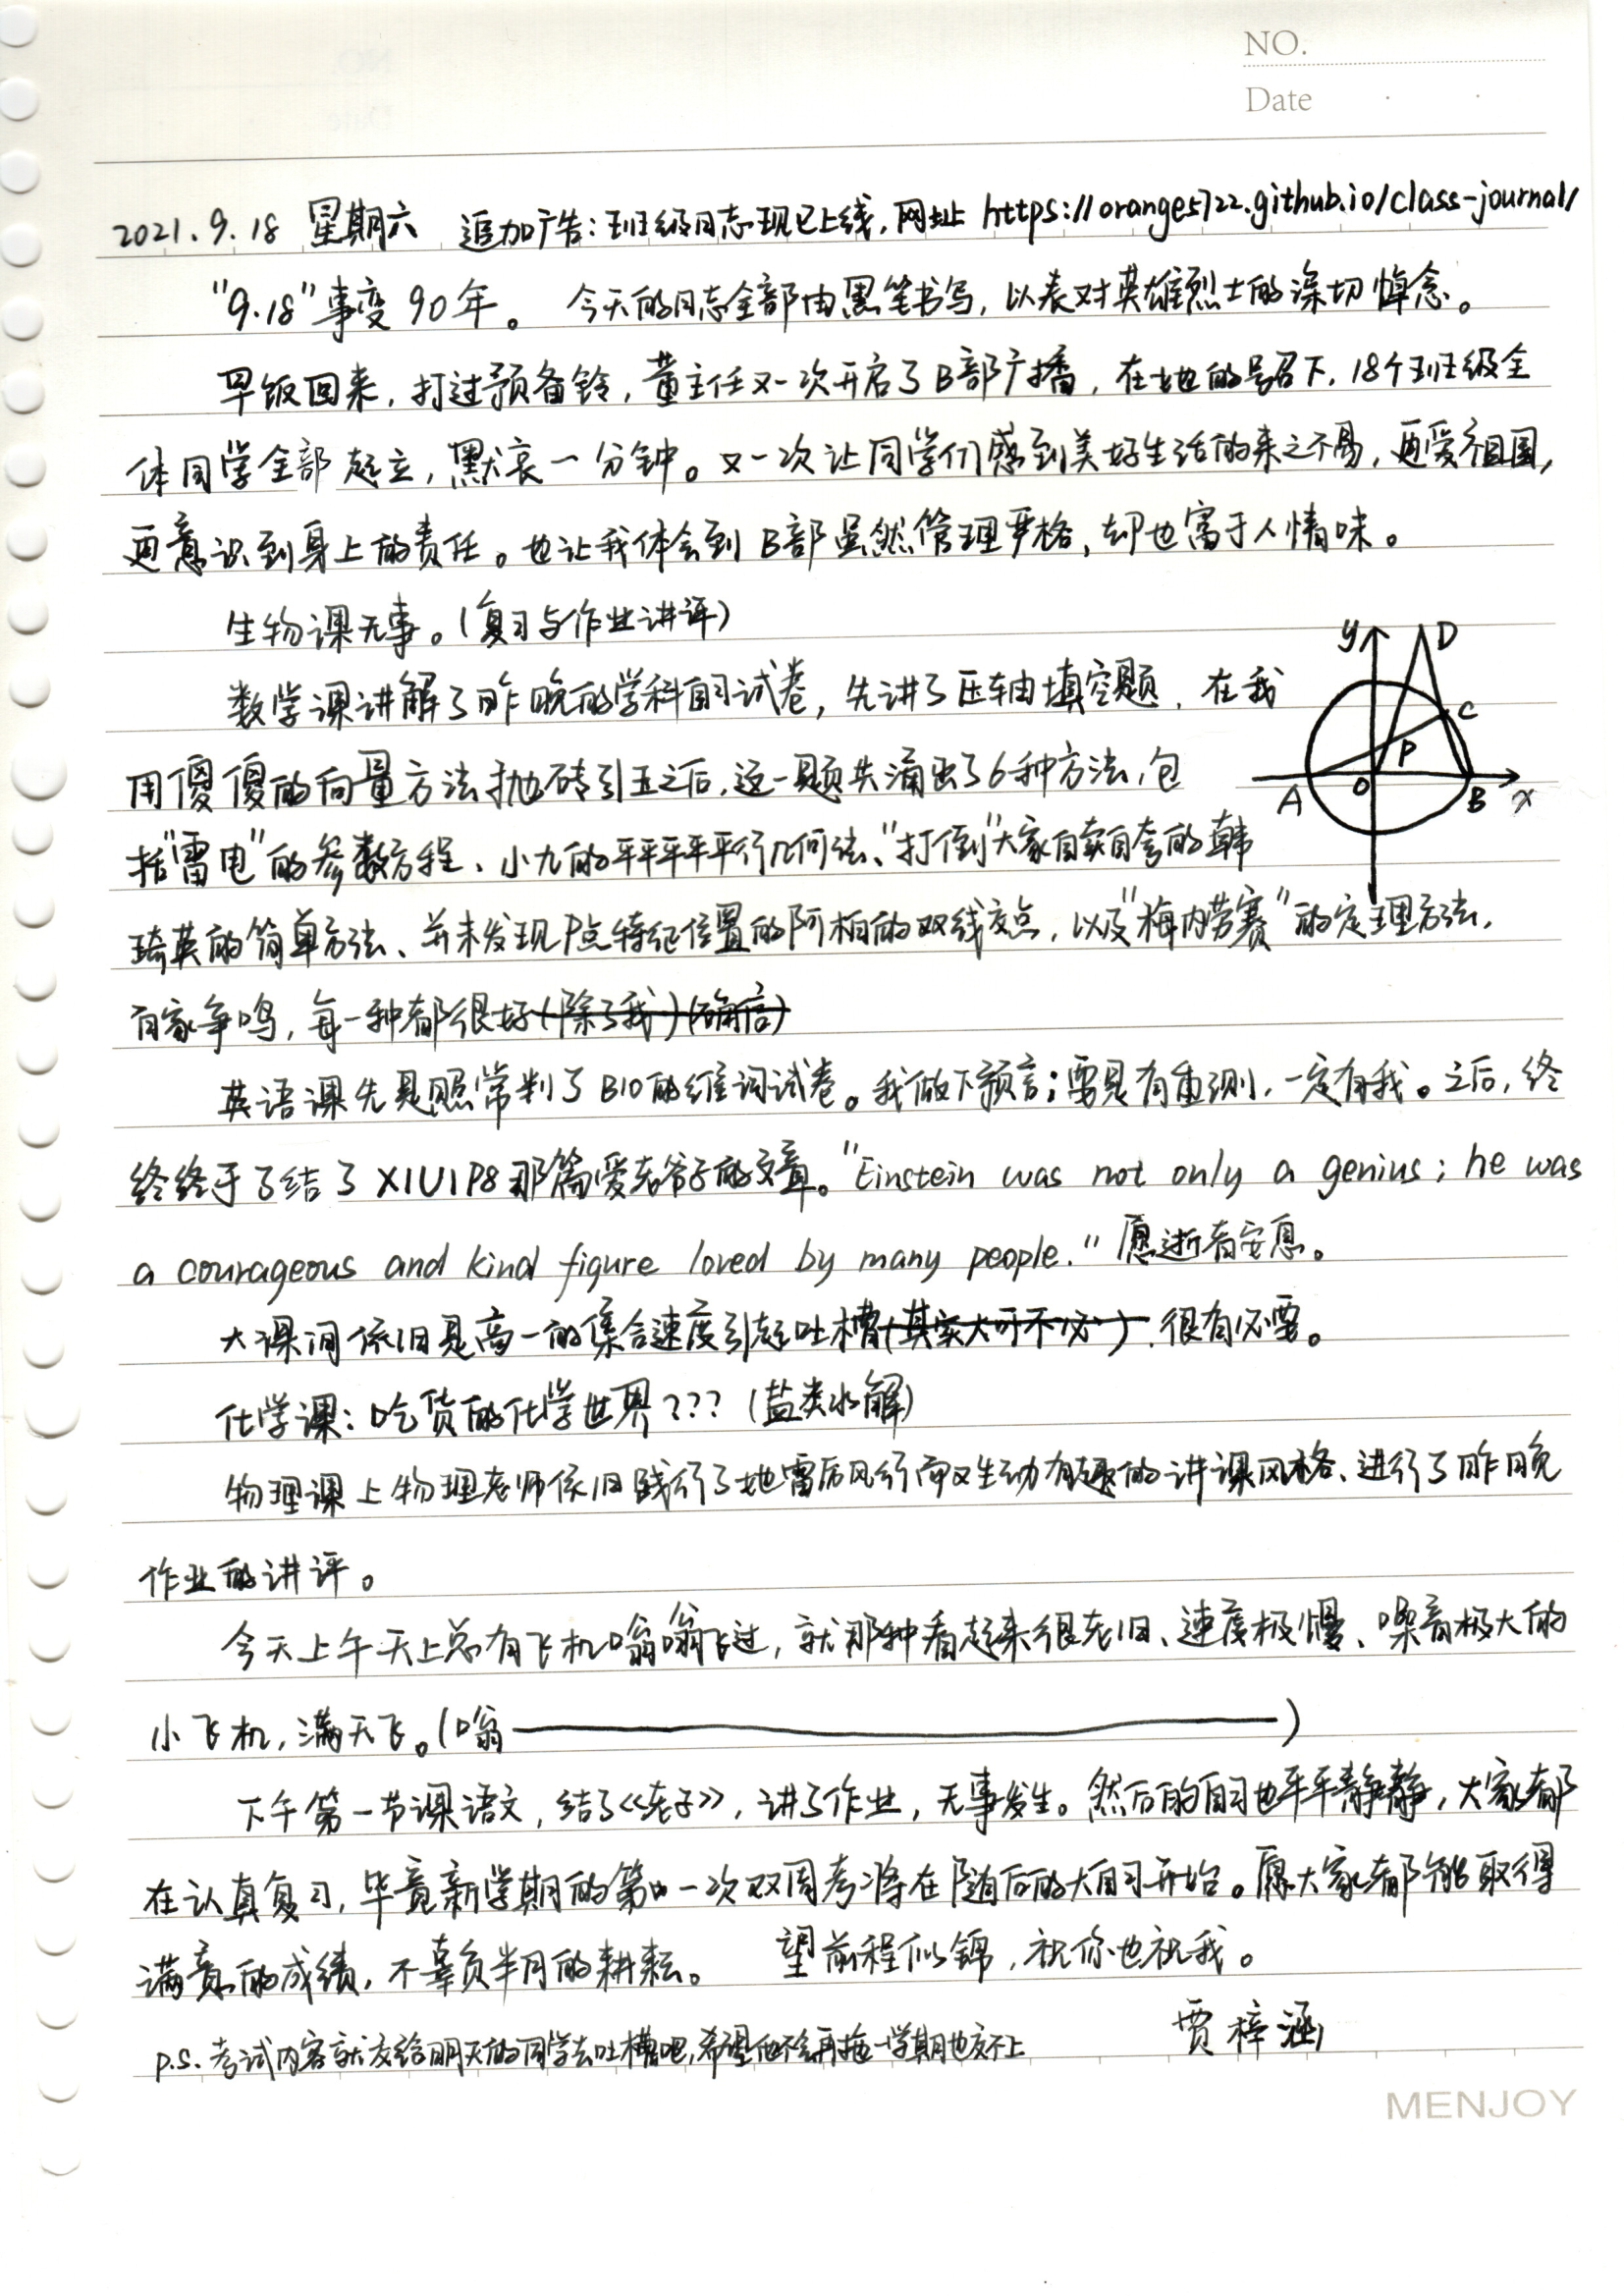 NO.
Date
2021.9.18 星期六 追加广告:班级日志现已上线,网址 https://orange5722.github.io/class-journal/
"9.18"事变90年。 今天的日志全部由黑笔书写,以表对英雄烈士的深切悼念。
早饭回来,打过预备铃,董主任又一次开启了B部广播,在她的号召下,18个班级全
体同学全部起立,默哀一分钟。又一次让同学们感到美好生活的来之不易,更爱祖国,
更意识到身上的责任。也让我体会到B部虽然管理严格,却也富于人情味。
生物课无事。(复习与作业讲评)
数学课讲解了昨晚的学科自习试卷,先讲了压轴填空题,在我
用傻傻的向量方法抛砖引玉之后,这一题共涌出了6种方法,包
括"雷电"的参数方程、小九的平平平平平行几何法、"打倒"大家自卖自夸的韩
琦英的简单方法、并未发现P点特征位置的阿柏的双线交点,以及"梅内劳赛"的定理方法,
百家争鸣,每一种都很好(除了我)(确信)
y
D
C
P
A
O
B
x
英语课先是照常判了B10的维词试卷。我做下预言:要是有重测,一定有我。之后,终
终终于了结了X1U1P8那篇爱老爷子的文章。"Einstein was not only a genius; he was
a courageous and kind figure loved by many people." 愿逝者安息。
大课间依旧是高一的集合速度引起吐槽(其实大可不必),很有必要。
化学课:吃货的化学世界???(盐类水解)
物理课上物理老师依旧践行了她雷厉风行而又生动有趣的讲课风格、进行了昨晚
作业的讲评。
今天上午天上总有飞机嗡嗡飞过,就那种看起来很老旧、速度极慢、噪音极大的
小飞机,满天飞。(嗡——————————)
下午第一节课语文,结了《老子》,讲了作业,无事发生。然后的自习也平平静静,大家都
在认真复习,毕竟新学期的第一次双周考将在随后的大自习开始。愿大家都能取得
满意的成绩,不辜负半月的耕耘。 望前程似锦,祝你也祝我。
贾梓涵
p.s. 考试内容就交给明天的同学去吐槽吧,希望他不会再拖一学期也交不上
MENJOY